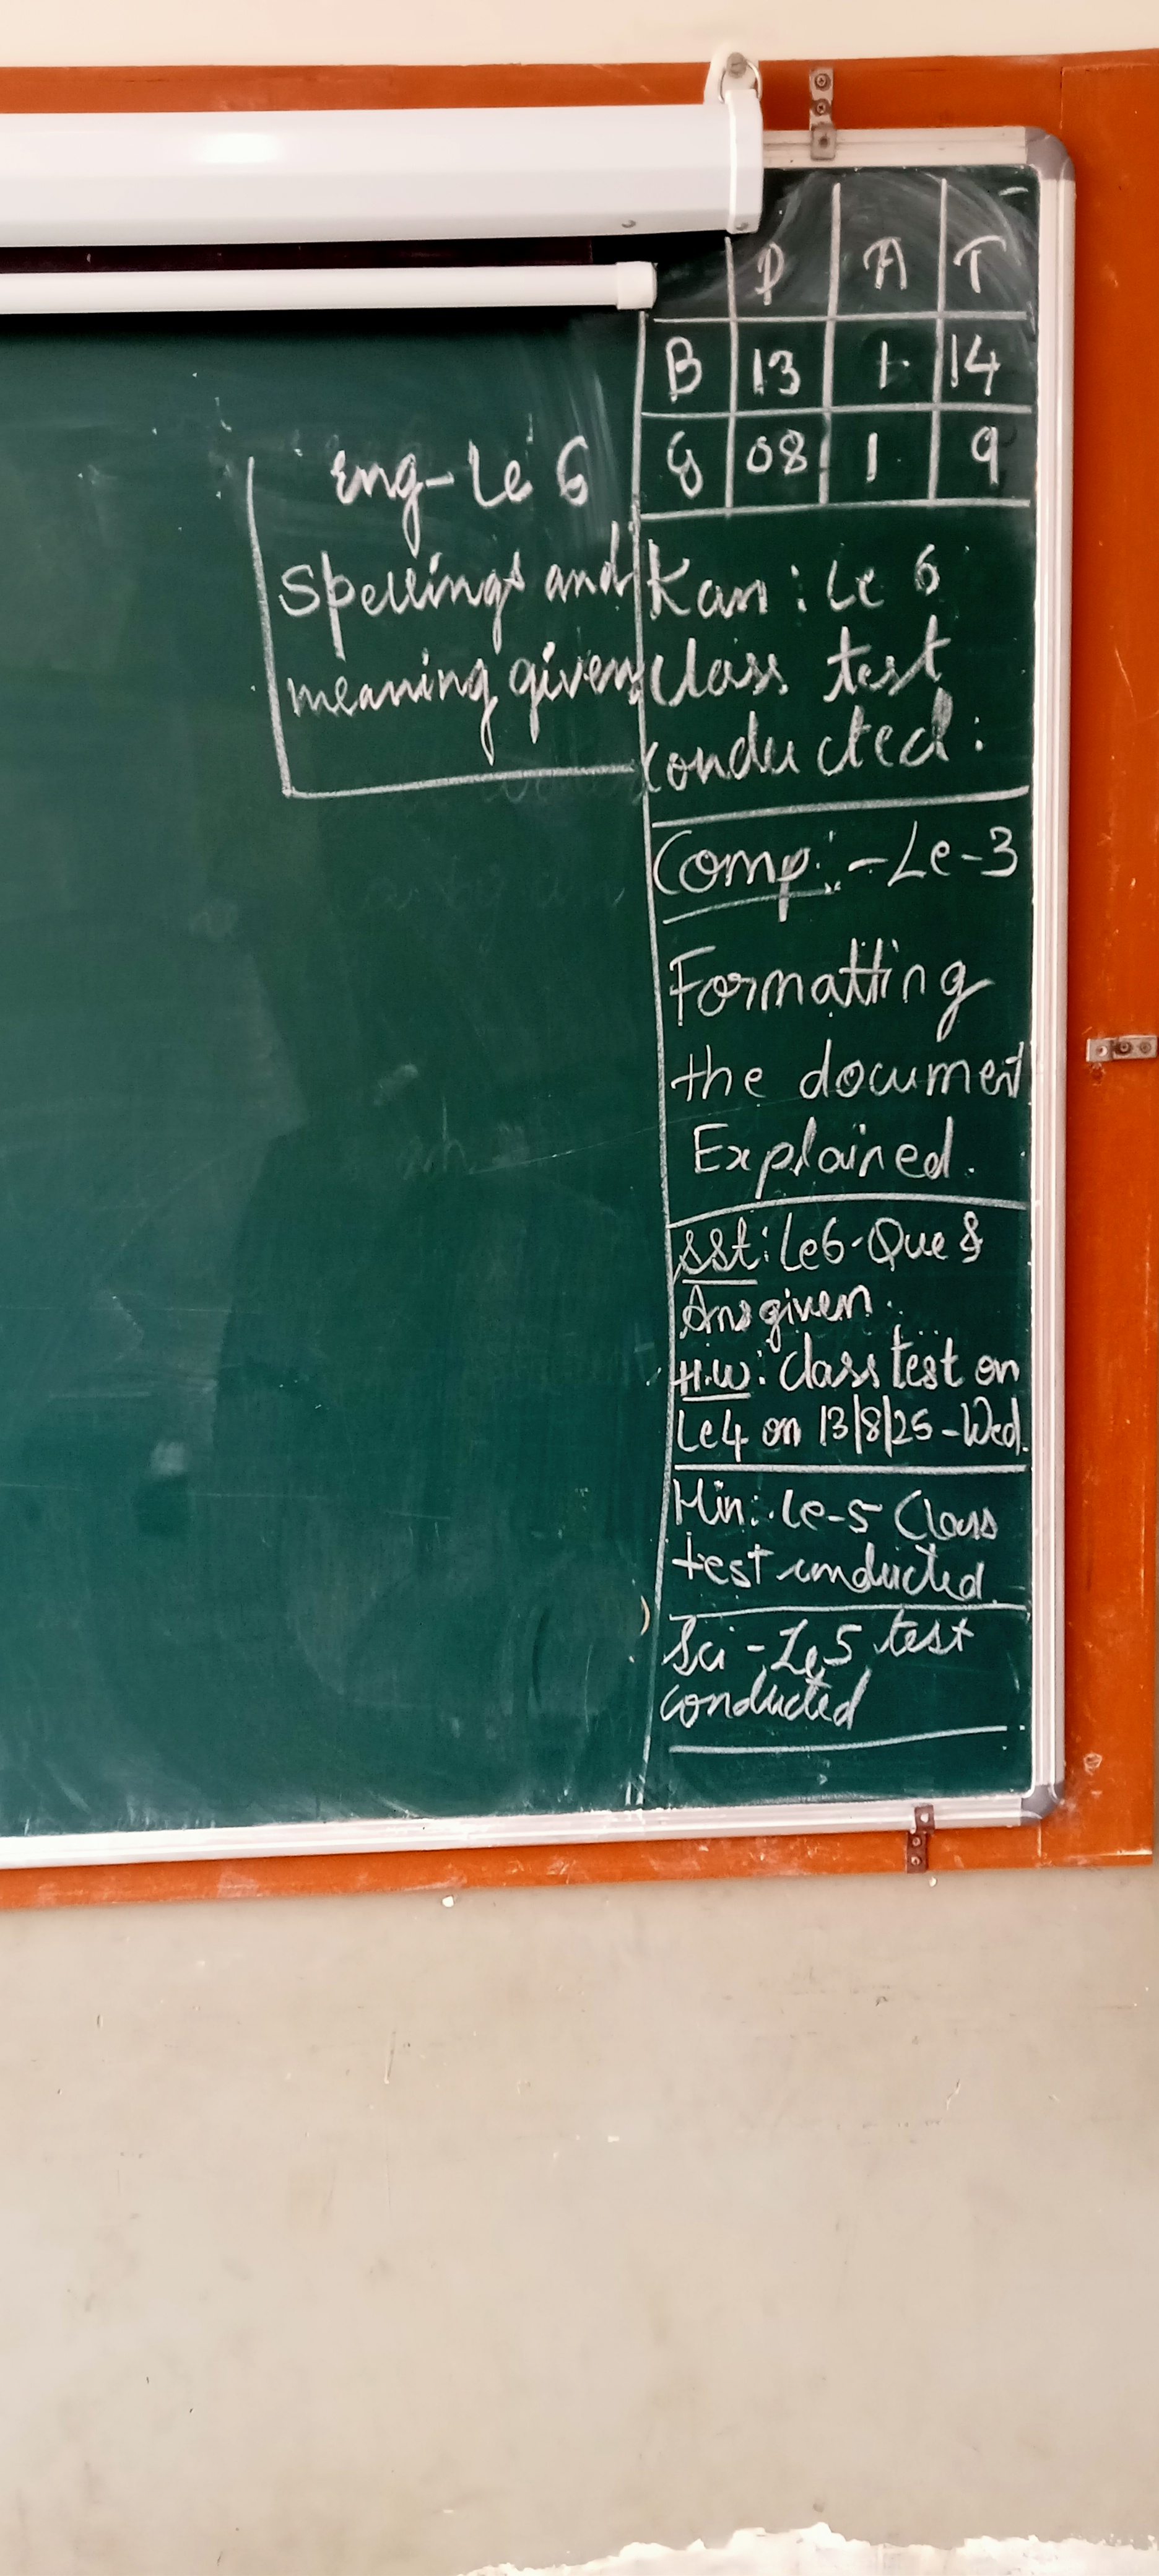 P A T
B 13 1 14
G 08 1 9
Eng- Le 6
Spellings and
meaning given
Kan : Le 6
class test
conducted :
Comp:- Le-3
Formatting
the document
Explained.
SSt: Le6-Que &
Ans given.
H.W: Class test on
Le4 on 13/8/25-Wed.
Hin: Le-5 Class
test conducted.
Sci - Le5 test
conducted